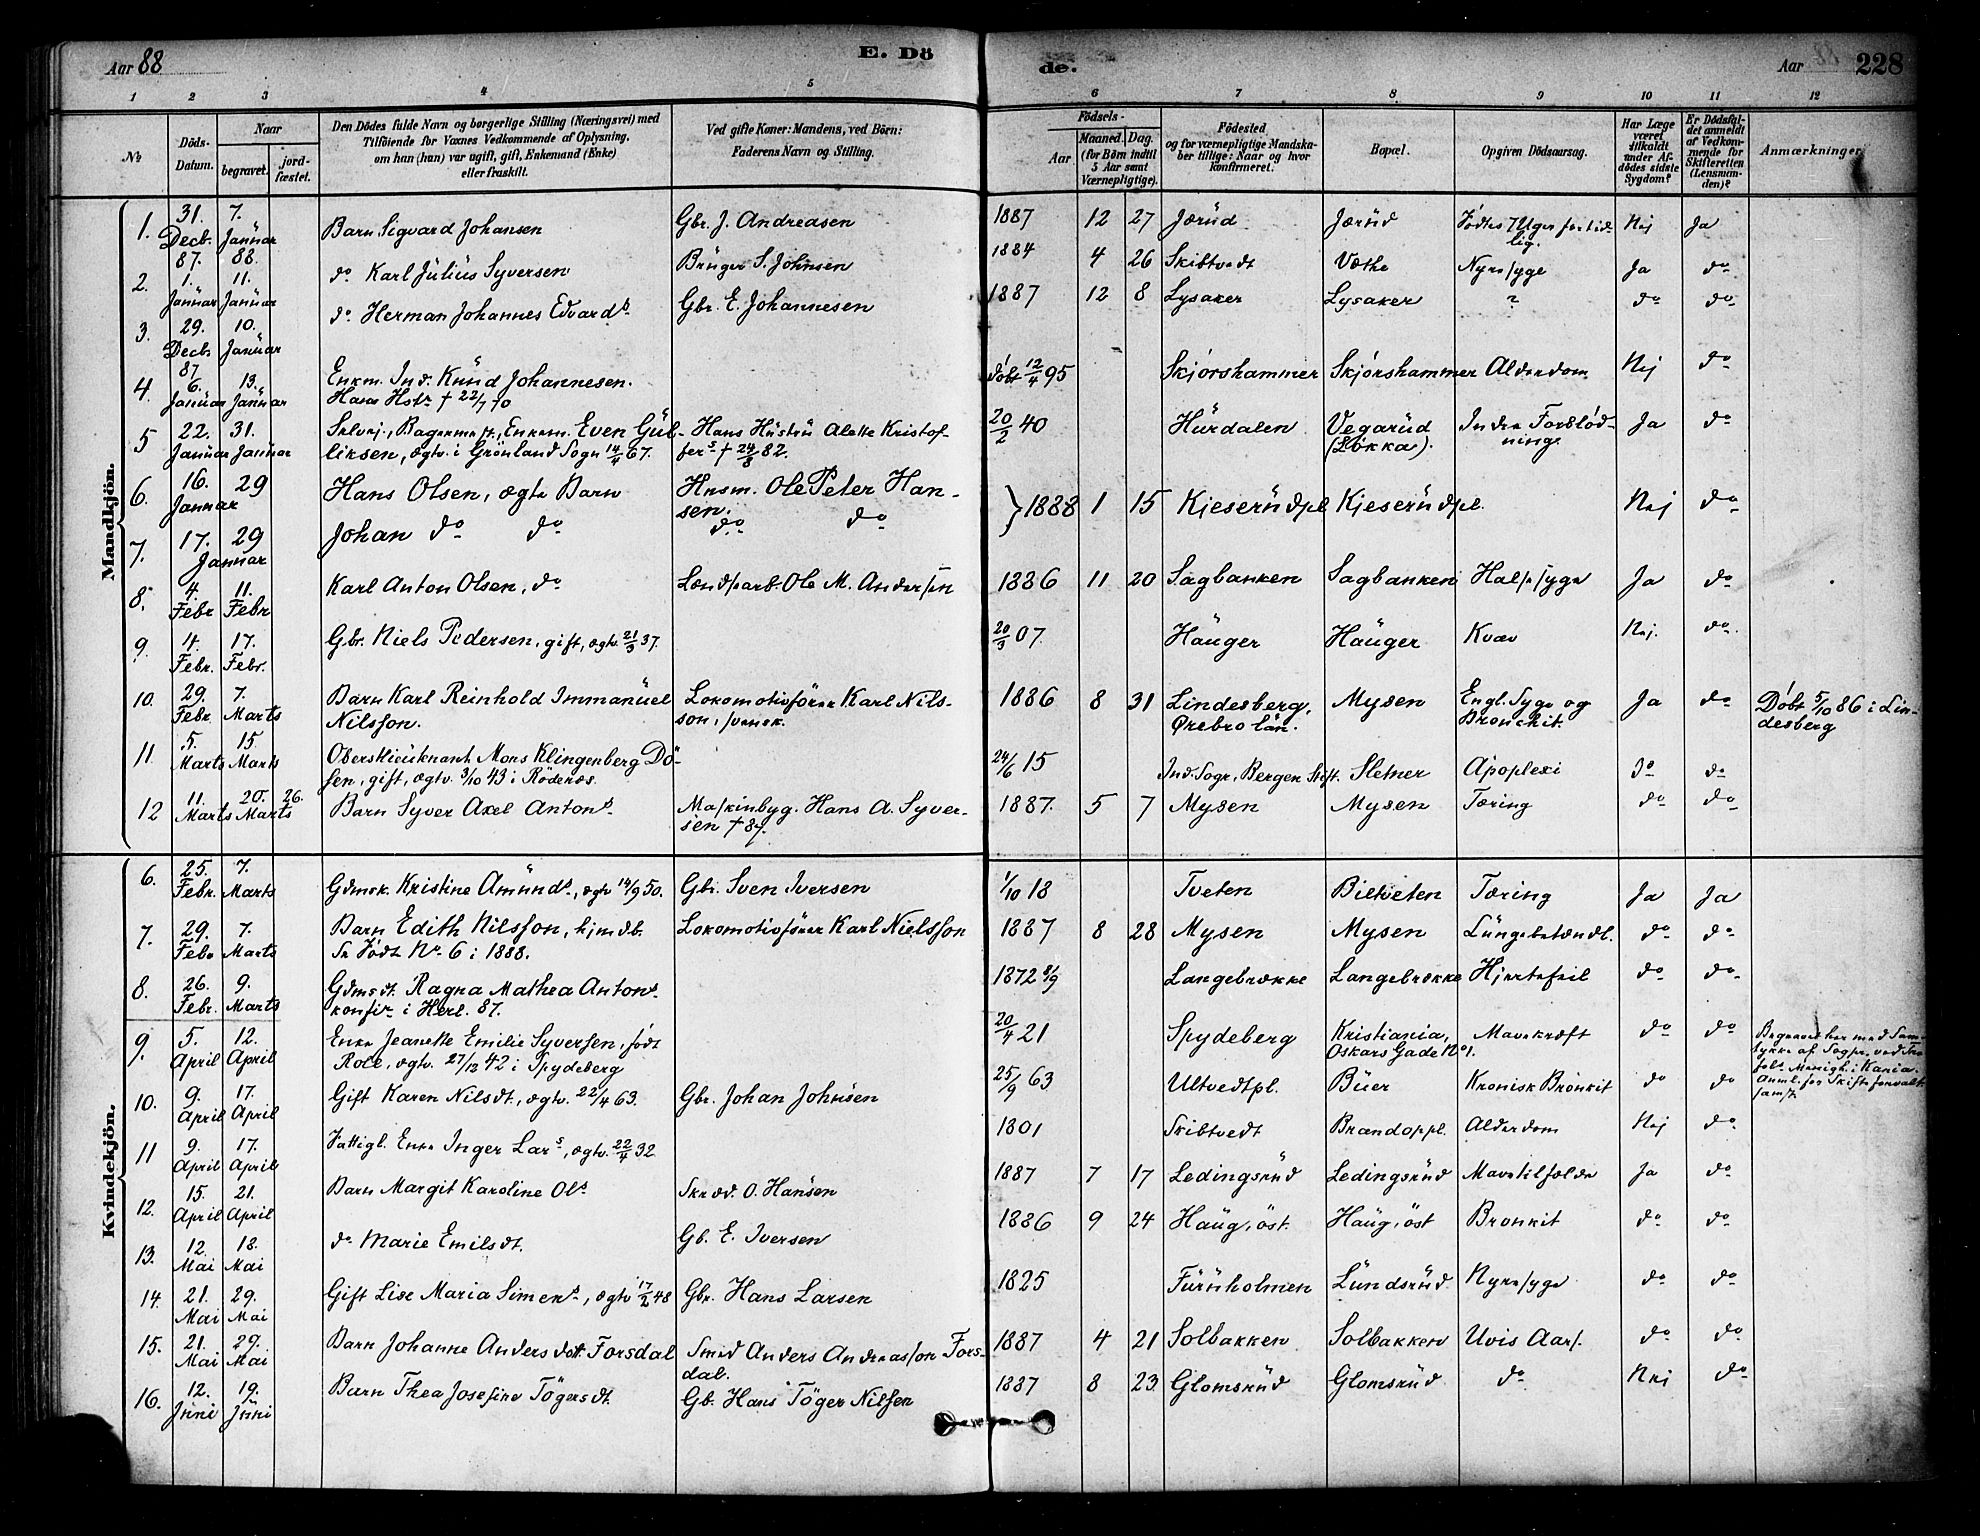 Aar 88
E. Dö
de.
Aar
228
1 2 3 4 5 6 7 8 9 10 11 12
No
Döds-
Datum.
Naar
begravet.
jord-
fæstet.
Den Dödes fulde Navn og borgerlige Stilling (Næringsvei) med
Tilföiende for Voxnes Vedkommende af Oplysning,
om han (hun) var ugift, gift, Enkemand (Enke)
eller fraskilt.
Ved gifte Koner: Mandens, ved Börn:
Faderens Navn og Stilling.
Födsels-
Aar
Maaned. Dag.
(for Børn indtil
5 Aar samt
Værnepligtige).
Födested
og for værnepligtige Mandska-
ber tillige: Naar og hvor
konfirmeret.
Bopæl.
Opgiven Dödsaarsag.
Har Læge
været
tilkaldt
under Af-
dödes sidste
Sygdom?
Er Dödsfal-
det anmeldt
af Vedkom-
mende for
Skifteretten
(Lensman-
den)?
Anmærkninger
Mandkjön.
1. 31. Decb. 87. 7. Januar 88. Barn Sigvard Johansen Gbr. J. Andreasen 1887 12 27 Jærud Jærud Fødtes 7 Uger for tid-
lig. Nej Ja
2. 1. Januar 11. Januar do Karl Julius Syversen Bruger S. Johnsen 1884 4 26 Skibtvedt Vøthe Nyresyge Ja do
3. 29. Decb 87 10. Januar do Herman Johannes Edvards. Gbr. E. Johannesen 1887 12 8 Lysaker Lysaker ? do do
4. 6. Januar 13. Januar Enkm. Ind. Knud Johannesen.
Hans Hstr † 22/7 70 døbt 12/4 95 Skjørshammer Skjørshammer Alderdom Nej do
5 22. Januar 31. Januar Selvej., Bagermest., Enkem. Even Gul-
liksen, ægtv. i Grønland Sogn 14/4 67. Hans Hustru Alette Kristof-
fers † 24/8 82. 20/2 40 Hurdalen Vegarud
(Løkka). Indre Forblød-
ning. Ja do
6. 16. Januar 29 Hans Olsen, ægte Barn Husm. Ole Peter Han-
sen. } 1888 1 15 Kjeserudpl Kjeserudpl. Nej do
7. 17. Januar 29 Johan do do do do
8. 4. Febr 11. Febr Karl Anton Olsen, do Lændsarb. Ole M. Andersen 1886 11 20 Sagbanken Sagbanken Halssyge Ja do
9. 4. Febr. 17. Febr. Gbr. Niels Pedersen, gift, ægtv. 21/3 37. 20/3 07. Hauger Hauger Kvæv Nej. do.
10. 29. Febr. 7. Marts Barn Karl Reinhold Immanuel
Nilsson. Lokomotivfører Karl Nils-
son, svensk. 1886 8 31 Lindesberg,
Ørebro län. Mysen Engl. Syge og
Bronchit. Ja do Døbt 5/10 86 i Lin-
desberg
11. 5. Marts 15 Marts Oberstlieutenant Mons Klingenberg Dö-
sen, gift, ægtv. 3/10 43 i Rödenæs. 24/6 15 Ind. Sogn, Bergen Stift. Sletner Apoplexi do do
12 11. Marts 20. Marts 26. Barn Syver Axel Antons. Maskinbyg. Hans A. Syver-
sen † 87. 1887. 5 7 Mysen Mysen Tæring do do
Kvindekjön.
6. 25. Febr. 7. Marts Gdmsk. Kristine Amunds., ægtv 14/9 50. Gbr. Sven Iversen 1/10 18 Tveten Biltveten Tæring Ja Ja
7. 29. Febr 7. Marts Barn Edith Nilsson, hjmdb.
Se Født No. 6 i 1888. Lokomotivfører Karl Nielsson 1887 8 28 Mysen Mysen Lungebetændl. do do
8. 26. Febr. 9. Marts Gdmsdt. Ragna Mathea Antons.
konfir. i Herl. 87. 1872 8/9 Langebrække Langebrække Hjertefeil do do
9. 5. April 12. April Enke Jeanette Emilie Syversen, født
Roll, ægtv. 27/12 42 i Spydeberg 20/4 21 Spydeberg Kristiania,
Oskars Gade No 1. Mavekræft do do Begravet her med Sam-
tykke af Sogpr. ved Tro
fold. Menigh. i Kania.
Anml. for Skifteforvalt
samst.
10. 9. April 17. April Gift Karen Nilsdt., ægtv. 22/4 63. Gbr. Johan Johnsen 25/9 63 Ultvedtpl. Buer Kronisk Bronkit do do
11 9. April 17. April Fattigl. Enke Inger Lars, ægtv. 22/4 32 1801 Skibtvedt Brandoppl. Alderdom Nej do
12. 15. April 21. April Barn Margit Karoline Ols. Skræd. O. Hansen 1887 7 17 Ledingsrud Ledingsrud Mavetilfælde Ja do
13. 12. Mai 18. Mai do Marie Emilsdt. Gb. E. Iversen 1886 9 24 Haug, öst. Haug, öst Bronkit do do
14. 21. Mai 29. Mai Gift Lise Maria Simens., ægtv 17/2 48 Gbr. Hans Larsen 1825 Furuholmen Lundsrud Nyresyge do do
15. 21. Mai 29. Mai Barn Johanne Andersdatt. Forsdal Smed Anders Andreasson Fors-
dal. 1887 4 21 Solbakken Solbakken Uvis Aars. do do
16. 12. Juni 19. Juni Barn Thea Josefine Tögersdt. Gb. Hans Töger Nilsen 1887 8 23 Glomsrud Glomsrud do Nej do